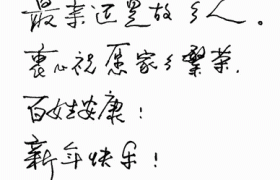 最亲还是故乡人。
衷心祝愿家乡繁荣.
百姓安康！
新年快乐！